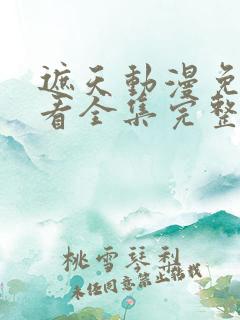 遮天動漫免
看全集完整
桃雪琴利
未经同意禁止转载